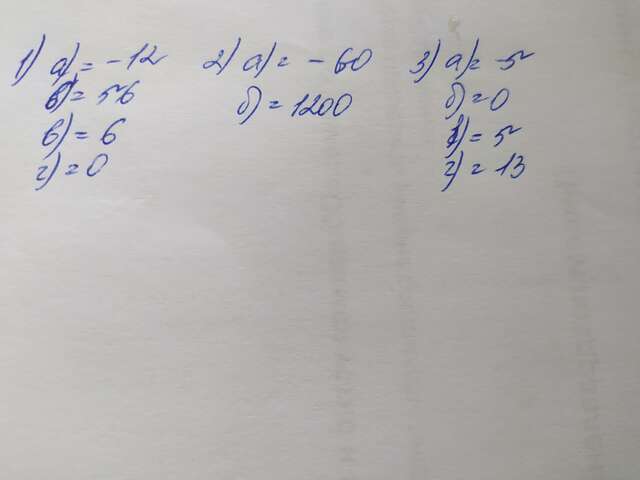 1) а) = -12
б) = 56
в) = 6
г) = 0
2) а) = -60
б) = 1200
3) а) = -5
б) = 0
в) = 5
г) = 13